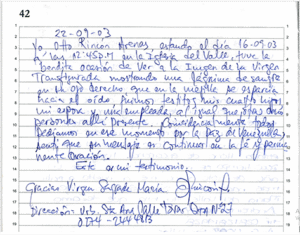 42
22-09-03
Yo Otto Rincón Arenas estando el día 16-09-03
a las 12:45 p.m en la Iglesia del Valle, tuve la
bendita ocasión de ver a la Imagen de la Virgen
Transfigurada mostrando una lágrima de sangre
en un ojo derecho que en la mejilla se esparcía
hacia el oído. Fuimos testigos mis cuatro hijos,
mi esposa y una empleada, al igual que otras
personas allí presente. Coincidencialmente todos
Pedíamos en ese momento por la Paz de Venezuela,
continuar en la
nente oración.
Este es mi testimonio.
Gracias Virgen Sagrada María
Dirección: Urb. Sta Ana Valle
0174-2444813